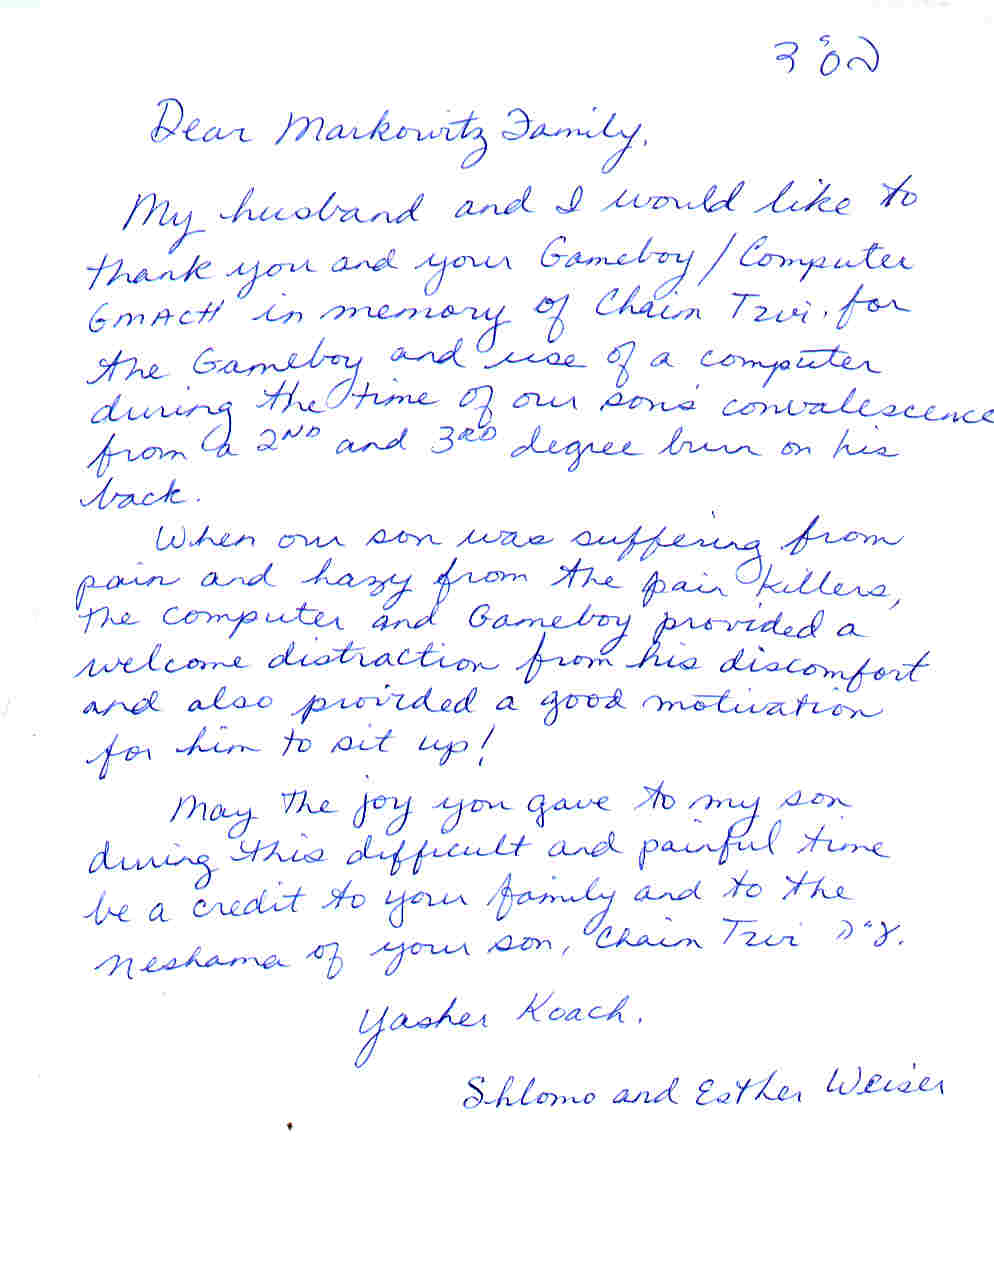 בס״ד
Dear Markowitz Family,
My husband and I would like to
thank you and your Gameboy / Computer
GMACH in memory of Chaim Tzvi. for
the Gameboy and use of a computer
during the time of our son's convalescence
from a 2ND and 3RD degree burn on his
back.
When our son was suffering from
pain and hazy from the pain killers,
the computer and Gameboy provided a
welcome distraction from his discomfort
and also provided a good motivation
for him to sit up!
May the joy you gave to my son
during this difficult and painful time
be a credit to your family and to the
Neshama of your son, Chaim Tzvi ע״ה.
Yasher Koach.
Shlomo and Esther Weiser